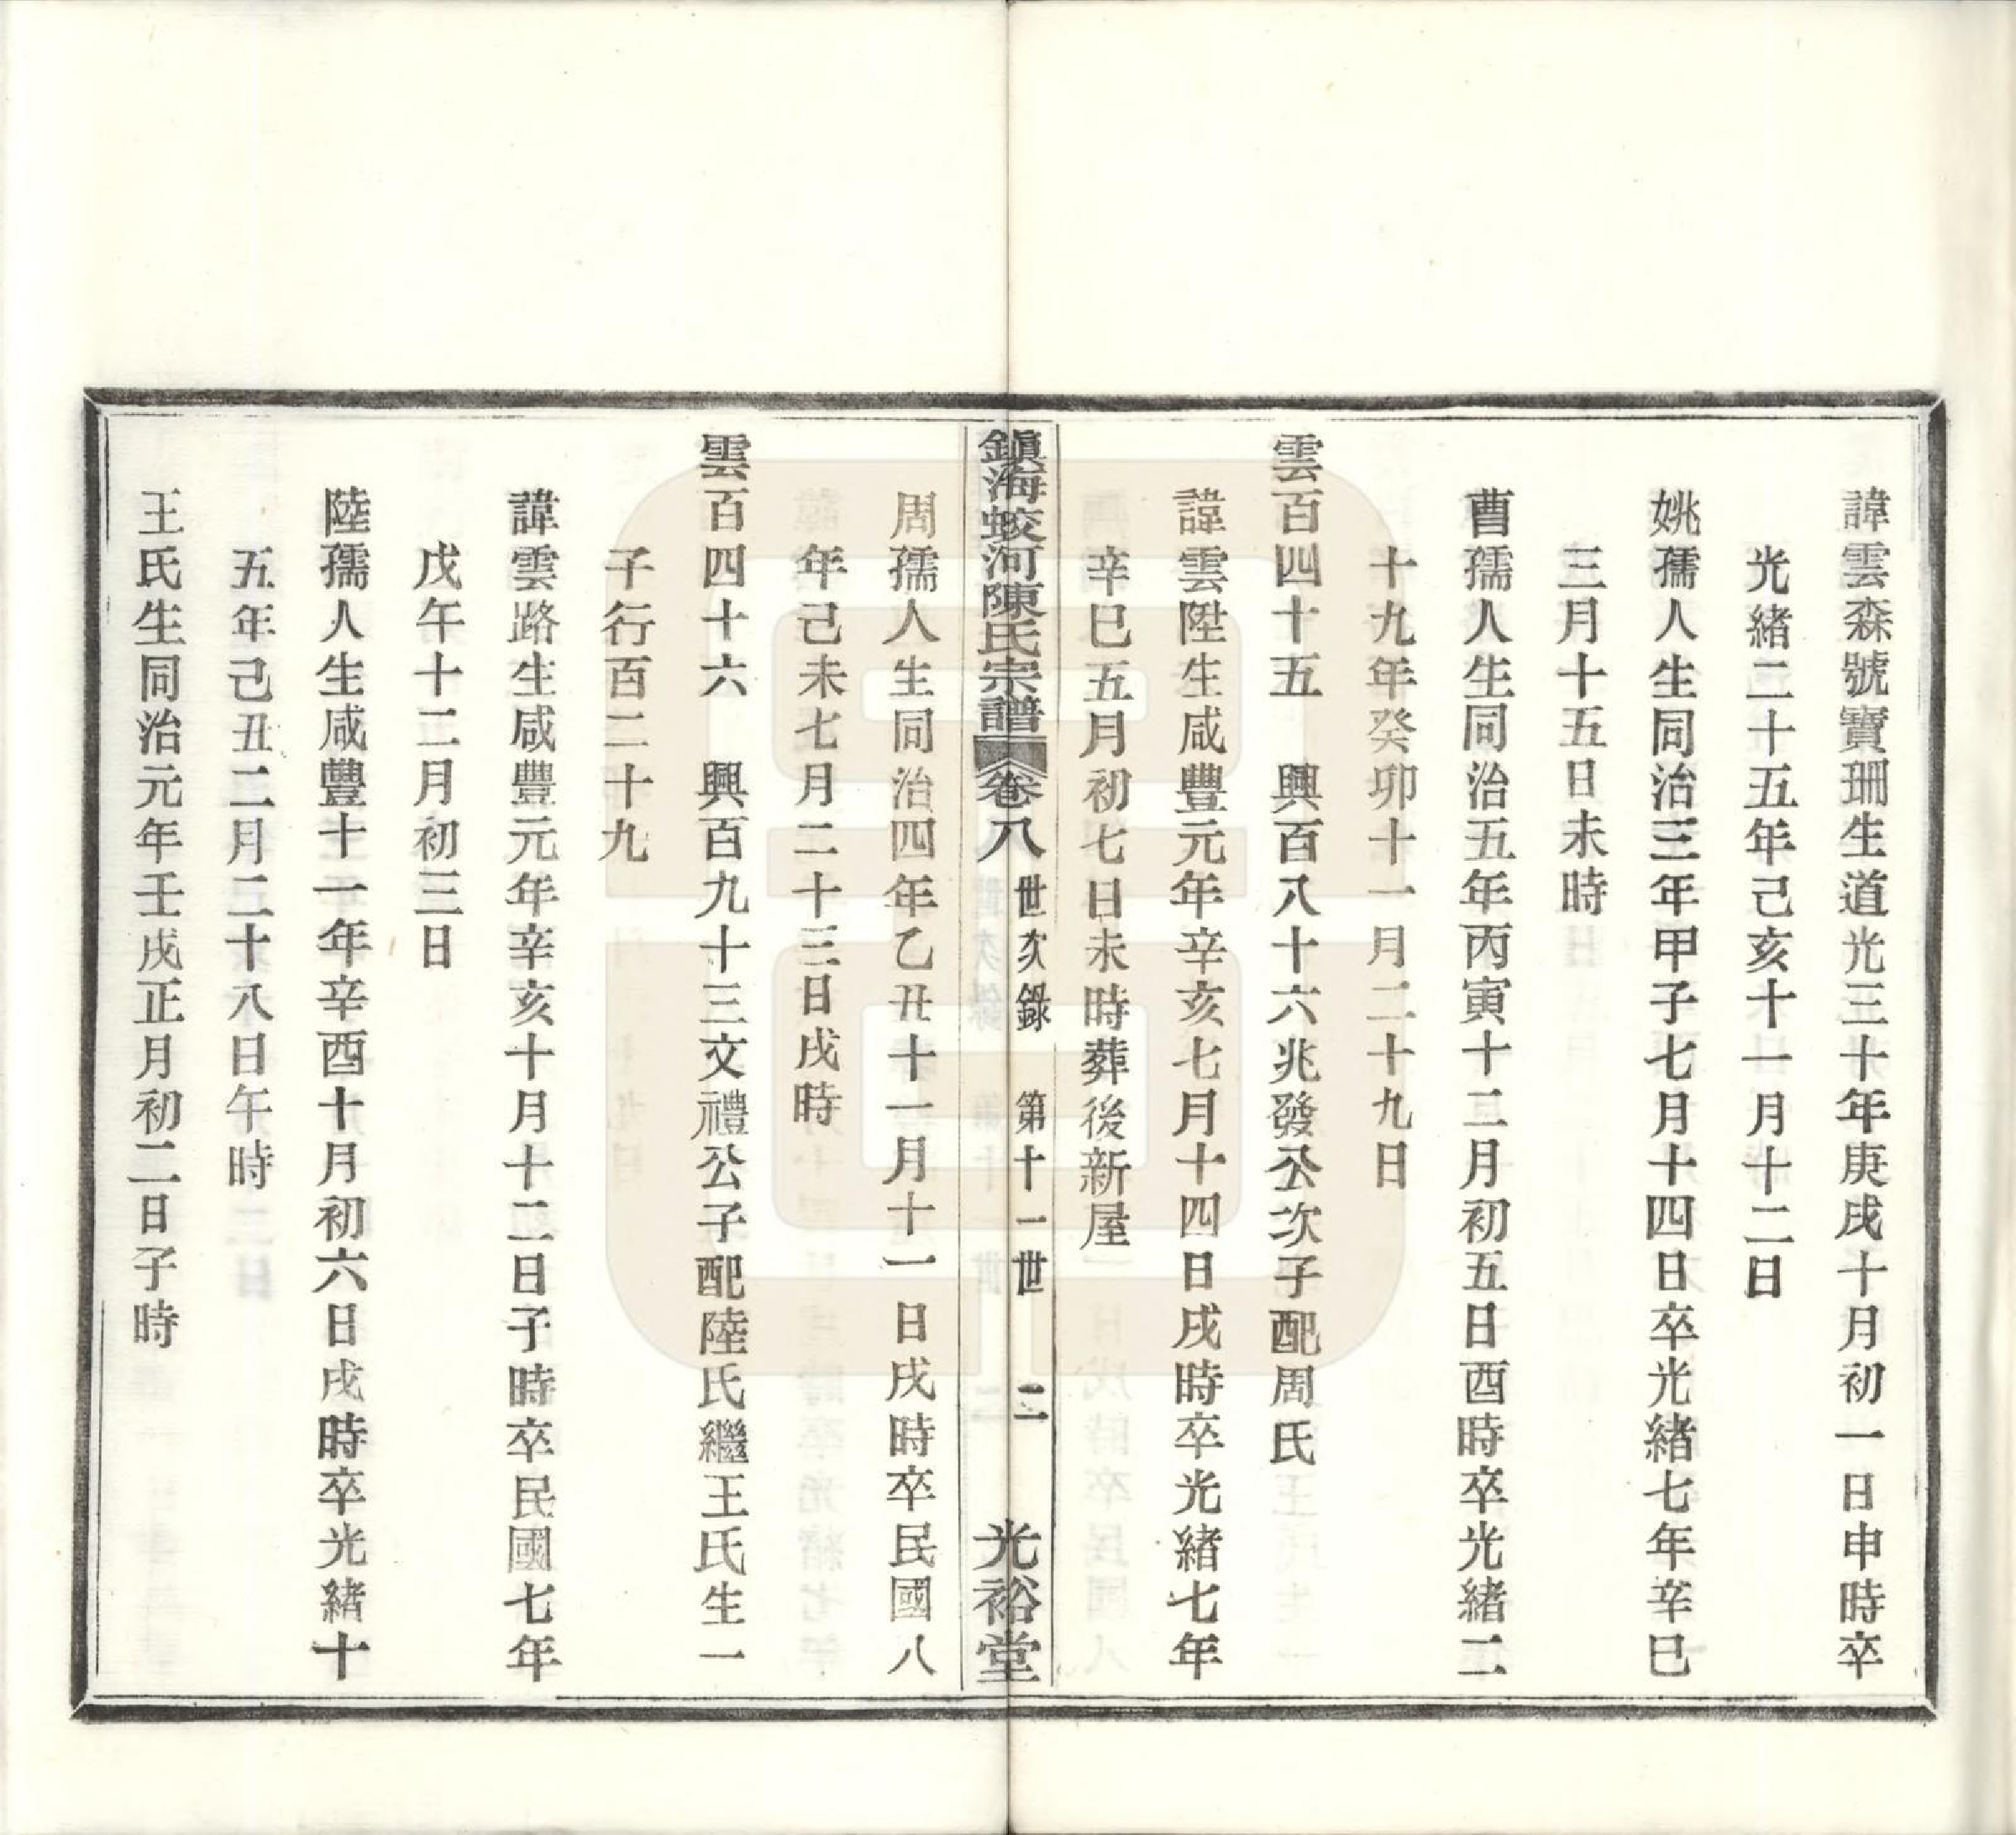 諱雲森號寶珊生道光三十年庚戌十月初一日申時卒
光緒二十五年己亥十一月十二日
姚孺人生同治三年甲子七月十四日卒光緒七年辛巳
三月十五日未時
曹孺人生同治五年丙寅十二月初五日酉時卒光緒二
十九年癸卯十一月二十九日
雲百四十五　興百八十六兆發公次子配周氏
諱雲陞生咸豐元年辛亥七月十四日戌時卒光緒七年
辛巳五月初七日未時葬後新屋
鎭海蛟河陳氏宗譜　卷八　世次錄　第十一世　二　光裕堂
周孺人生同治四年乙丑十一月十一日戌時卒民國八
年己未七月二十三日戌時
雲百四十六　興百九十三文禮公子配陸氏繼王氏生一
子行百二十九
諱雲路生咸豐元年辛亥十月十二日子時卒民國七年
戊午十二月初三日
陸孺人生咸豐十一年辛酉十月初六日戌時卒光緒十
五年己丑二月二十八日午時
王氏生同治元年壬戌正月初二日子時